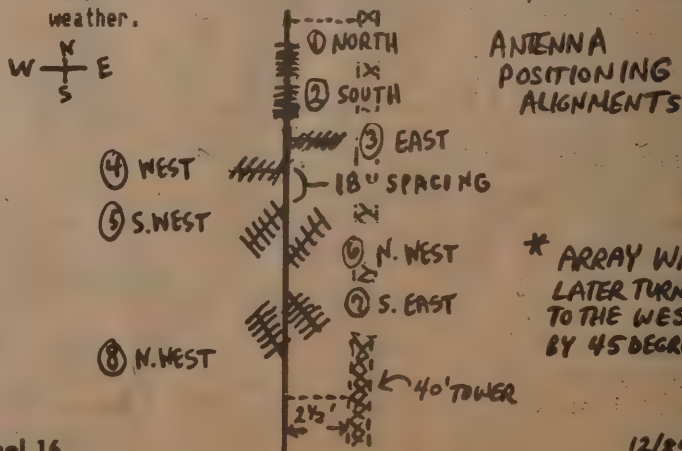 weather.
N
W E
S
① NORTH
② SOUTH
③ EAST
④ WEST
18" SPACING
⑤ S.WEST
⑥ N. WEST
⑦ S. EAST
⑧ N.WEST
40' TOWER
2½'
ANTENNA
POSITIONING
ALIGNMENTS
* ARRAY
LATER
TO THE
BY 45
12/89